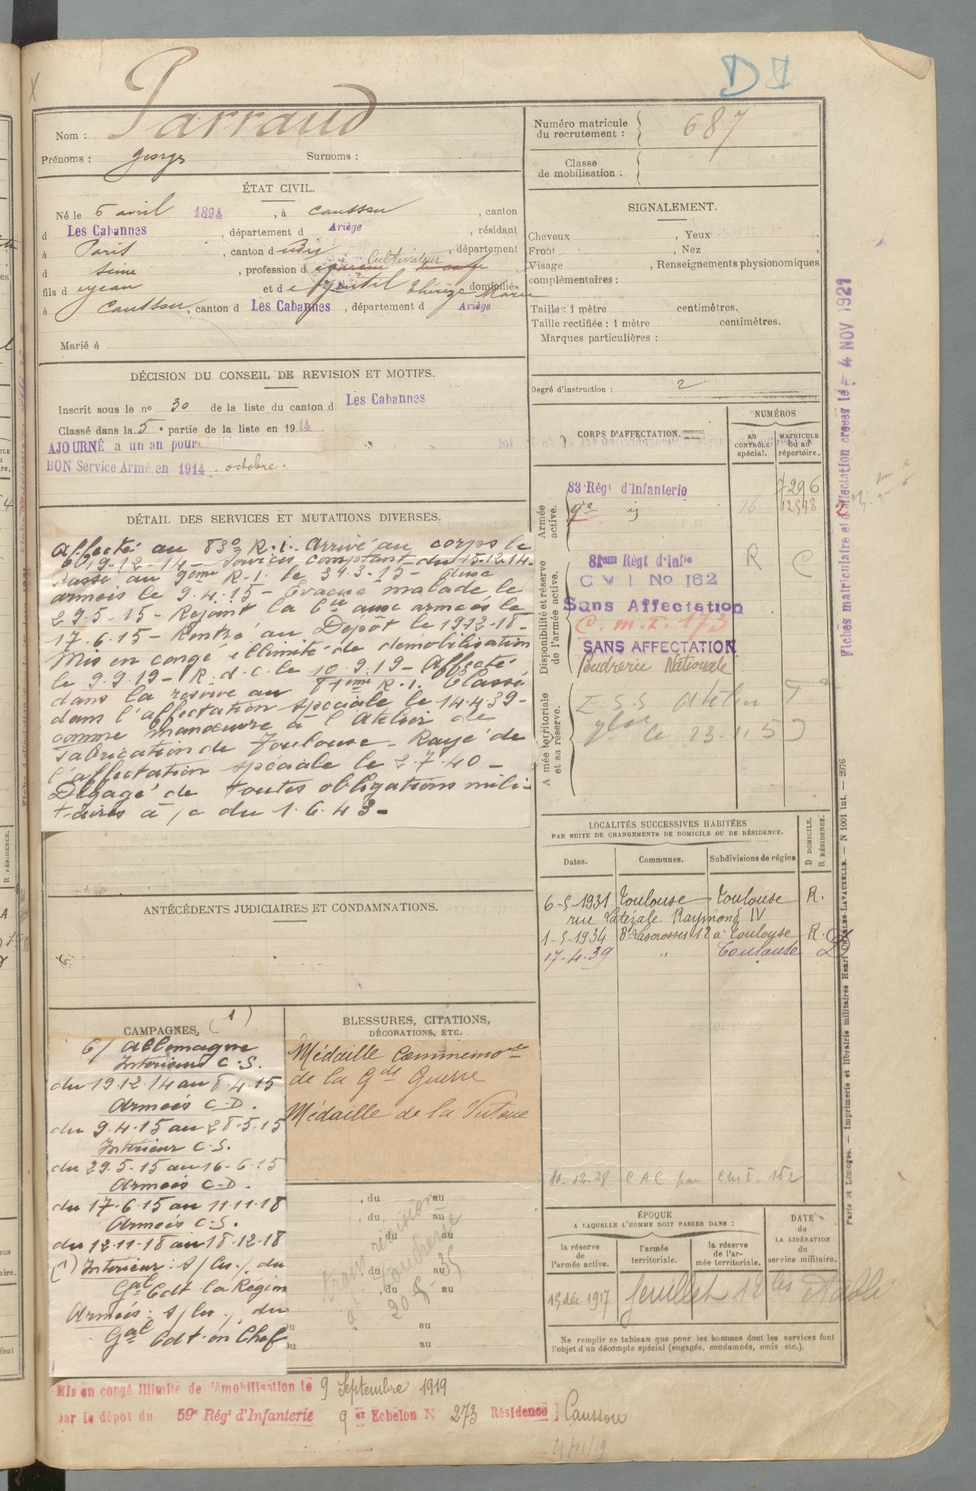 D I
Nom : Parraud
Prénoms : Georges Surnoms :
Numéro matricule du recrutement : 687
Classe de mobilisation :
ÉTAT CIVIL.
Né le 5 avril 1894, à Caussou, canton
d Les Cabannes, département d Ariège, résidant
à Paris, canton d udig, département
d Seine, profession d Cultivateur
fils d Jean et d e Thérèze Marie, domiciliés
à Caussou, canton d Les Cabannes, département d Ariège
Marié à
SIGNALEMENT.
Cheveux , Yeux
Front , Nez
Visage , Renseignements physionomiques
complémentaires :
Taille : 1 mètre centimètres.
Taille rectifiée : 1 mètre centimètres.
Marques particulières :
Degré d'instruction : 2
DÉCISION DU CONSEIL DE REVISION ET MOTIFS.
Inscrit sous le no 30 de la liste du canton d Les Cabannes
Classé dans la 5e partie de la liste en 1914
AJOURNÉ à un an pour
BON Service Armé en 1914 . octobre.
DÉTAIL DES SERVICES ET MUTATIONS DIVERSES.
Affecté au 83e R.I. Arrivé au corps le
19-12-14 - Services comptant du 15.12.14.
Passé au 9ème R.I. le 31-3-15 - Aux
armées le 9.4.15 - Evacué malade le
29.5.15 - Rejoint la Cie aux armées le
17.6.15 - Rentré au Dépôt le 19-12-18 -
Mis en congé illimité de démobilisation
le 9.9.19 - R.d.c. le 10.9.19 - Affecté
dans la réserve au 81ème R.I. Classé
dans l'affectation spéciale le 14.4.39 -
comme manoeuvre à l'Atelier de
Fabrication de Toulouse - Rayé de
l'affectation spéciale le 2.7.40 -
Dégagé de toutes obligations mili-
taires à /c du 1.6.43 -
ANTÉCÉDENTS JUDICIAIRES ET CONDAMNATIONS.
CORPS D'AFFECTATION.
NUMÉROS
AU CONTRÔLE spécial.
MATRICULE OU AU répertoire.
Armée active.
83e Régt d'Infanterie 7296
9e ij 16 12598
Disponibilité et réserve de l'armée active.
81eme Régt d'Infie R C
C M I No 162
Sans Affectation
C. m. I. 173
SANS AFFECTATION
Poudrerie Nationale
Armée territoriale et sa réserve.
E.S.S Atelier
le 23.1.5
Fiches matriculaire et d'affectation créées le - 4 NOV 1921
LOCALITÉS SUCCESSIVES HABITÉES
PAR SUITE DE CHANGEMENTS DE DOMICILE OU DE RÉSIDENCE.
Dates. Communes. Subdivisions de région D DOMICILE. R RÉSIDENCE.
6-5-1931 Toulouse Toulouse R.
rue Raymond IV
1-5-1934 Bd Lascrosses 12 à Toulouse R.
17-4-39 " Toulouse D
10-12-28 C A C par CMI. 152
CAMPAGNES, (1)
C/ Allemagne
Intérieur C.S.
du 19-12-14 au 8.4.15
Armées C-D.
du 9.4.15 au 28-5-15
Intérieur C.S.
du 29.5.15 au 16-6-15
Armées C-D.
du 17-6.15 au 11-11-18
Armées C.S.
du 12-11-18 au 18-12-18
(1) Intérieur : S/ du
Gal Cdt la Région
Armées : S/ du
Gal Cdt en Chef
BLESSURES, CITATIONS,
DÉCORATIONS, ETC.
Médaille Commémove
de la Gde Guerre
Médaille de la Victoire
, du au
, du au
du au
du au
, du au
au
au
ÉPOQUE
A LAQUELLE L'HOMME DOIT PASSER DANS :
la réserve de l'armée active. l'armée territoriale. la réserve de l'armée territoriale.
DATE de LA LIBÉRATION du service militaire.
15 déc 1917 feuillet 12 bis
Ne remplir ce tableau que pour les hommes dont les services font
l'objet d'un décompte spécial (engagés, condamnés, omis etc.).
Mis en congé illimité de démobilisation le 9 Septembre 1919
par le dépôt du 59e Régt d'Infanterie 9 er Echelon No 273 Résidence Caussou
Paris et Limoges. — Imprimerie et librairie militaires Henri CHARLES-LAVAUZELLE. — N 1001 int. — 2076